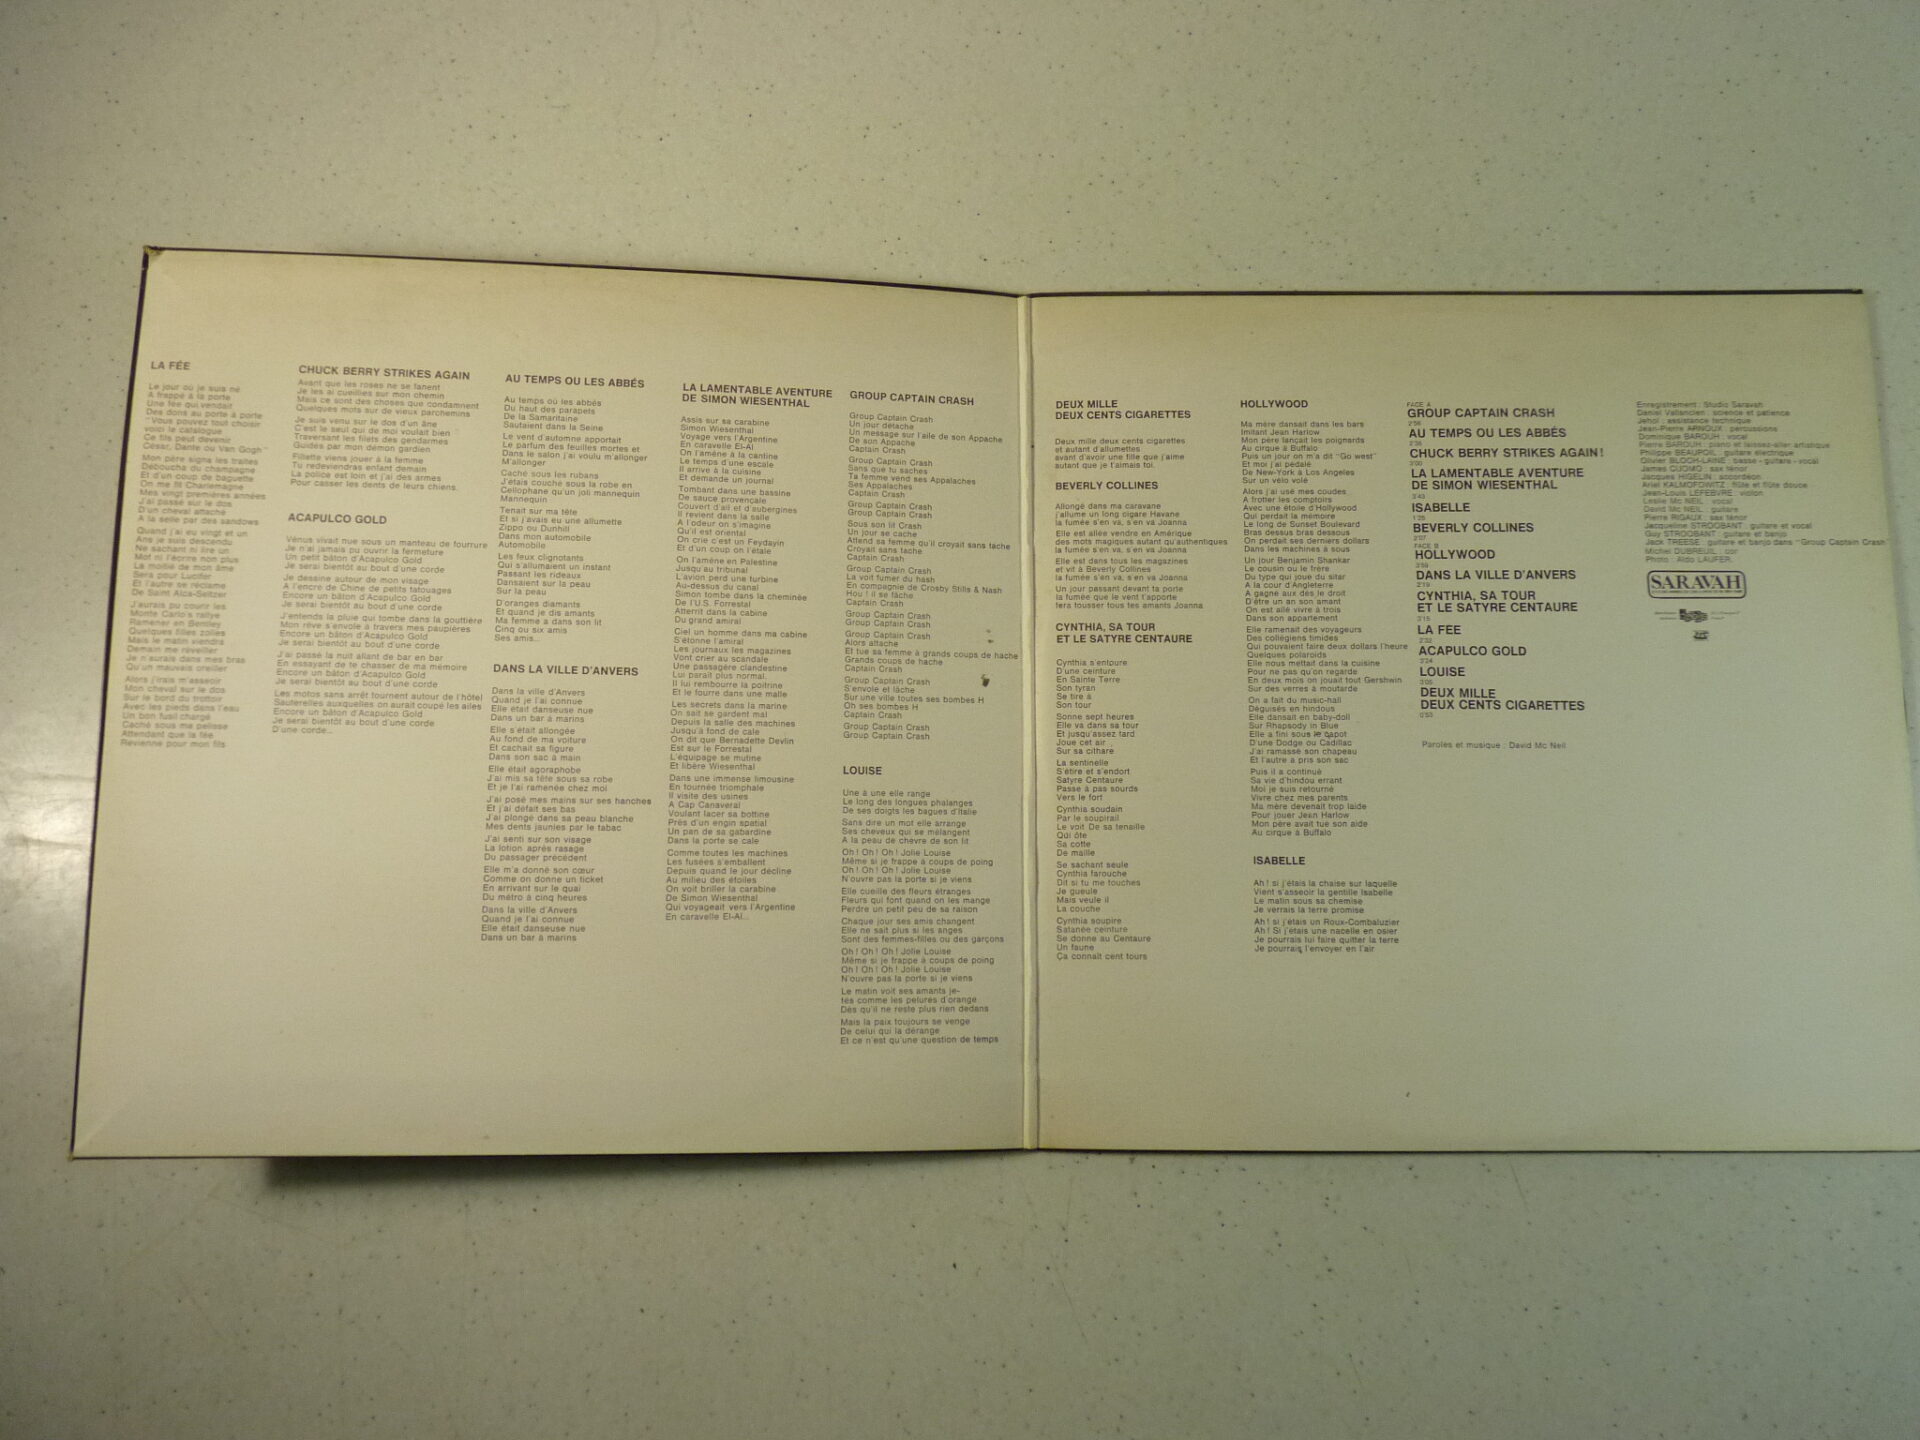 LA FÉE
Le jour où je suis né
A frappé à la porte
Une fée qui vendait
Des dons au porte à porte
"Vous pouvez tout choisir
voici le catalogue
Ce fils peut devenir
César, Dante ou Van Gogh"
Mon père signa les traites
Déboucha du champagne
Et d'un coup de baguette
On me fit Charlemagne
Mes vingt premières années
J'ai passé sur le dos
D'un cheval attaché
A la selle par des sandows
Quand j'ai eu vingt et un
Ans je suis descendu
Ne sachant ni lire un
Mot ni l'écrire non plus
La moitié de mon âme
Sera pour Lucifer
Et l'autre se réclame
De Saint Alca-Seltzer
J'aurais pu courir les
Monte Carlo's rallye
Ramener en Bentley
Quelques filles zolies
Mais le matin viendra
Demain me réveiller
Je n'aurais dans mes bras
Qu'un mauvais oreiller
Alors j'irais m'asseoir
Mon cheval sur le dos
Sur le bord du trottoir
Avec les pieds dans l'eau
Un bon fusil chargé
Caché sous ma pelisse
Attendant que la fée
Revienne pour mon fils
CHUCK BERRY STRIKES AGAIN
Avant que les roses ne se fanent
Je les ai cueillies sur mon chemin
Mais ce sont des choses que condamnent
Quelques mots sur de vieux parchemins
Je suis venu sur le dos d'un âne
C'est le seul qui de moi voulait bien
Traversant les filets des gendarmes
Guidés par mon démon gardien
Fillette viens jouer à la femme
Tu redeviendras enfant demain
La police est loin et j'ai des armes
Pour casser les dents de leurs chiens.
ACAPULCO GOLD
Vénus vivait nue sous un manteau de fourrure
Je n'ai jamais pu ouvrir la fermeture
Un petit bâton d'Acapulco Gold
Je serai bientôt au bout d'une corde
Je dessine autour de mon visage
A l'encre de Chine de petits tatouages
Encore un bâton d'Acapulco Gold
Je serai bientôt au bout d'une corde
J'entends la pluie qui tombe dans la gouttière
Mon rêve s'envole à travers mes paupières
Encore un bâton d'Acapulco Gold
Je serai bientôt au bout d'une corde
J'ai passé la nuit allant de bar en bar
En essayant de te chasser de ma mémoire
Encore un bâton d'Acapulco Gold
Je serai bientôt au bout d'une corde
Les motos sans arrêt tournent autour de l'hôtel
Sauterelles auxquelles on aurait coupé les ailes
Encore un bâton d'Acapulco Gold
Je serai bientôt au bout d'une corde
D'une corde...
AU TEMPS OU LES ABBÉS
Au temps où les abbés
Du haut des parapets
De la Samaritaine
Sautaient dans la Seine
Le vent d'automne apportait
Le parfum des feuilles mortes et
Dans le salon j'ai voulu m'allonger
M'allonger
Caché sous les rubans
J'étais couché sous la robe en
Cellophane qu'un joli mannequin
Mannequin
Tenait sur ma tête
Et si j'avais eu une allumette
Zippo ou Dunhill
Dans mon automobile
Automobile
Les feux clignotants
Qui s'allumaient un instant
Passant les rideaux
Dansaient sur la peau
Sur la peau
D'oranges diamants
Et quand je dis amants
Ma femme a dans son lit
Cinq ou six amis
Ses amis...
DANS LA VILLE D'ANVERS
Dans la ville d'Anvers
Quand je l'ai connue
Elle était danseuse nue
Dans un bar à marins
Elle s'était allongée
Au fond de ma voiture
Et cachait sa figure
Dans son sac à main
Elle était agoraphobe
J'ai mis sa tête sous sa robe
Et je l'ai ramenée chez moi
J'ai posé mes mains sur ses hanches
Et j'ai défait ses bas
J'ai plongé dans sa peau blanche
Mes dents jaunies par le tabac
J'ai senti sur son visage
La lotion après rasage
Du passager précédent
Elle m'a donné son cœur
Comme on donne un ticket
En arrivant sur le quai
Du métro à cinq heures
Dans la ville d'Anvers
Quand je l'ai connue
Elle était danseuse nue
Dans un bar à marins
LA LAMENTABLE AVENTURE
DE SIMON WIESENTHAL
Assis sur sa carabine
Simon Wiesenthal
Voyage vers l'Argentine
En caravelle El-Al
On l'amène à la cantine
Le temps d'une escale
Il arrive à la cuisine
Et demande un journal
Tombant dans une bassine
De sauce provençale
Couvert d'ail et d'aubergines
Il revient dans la salle
A l'odeur on s'imagine
Qu'il est oriental
On crie c'est un Feydayin
Et d'un coup on l'étale
On l'amène en Palestine
Jusqu'au tribunal
L'avion perd une turbine
Au-dessus du canal
Simon tombe dans la cheminée
De l'U.S. Forrestal
Atterrit dans la cabine
Du grand amiral
Ciel un homme dans ma cabine
S'étonne l'amiral
Les journaux les magazines
Vont crier au scandale
Une passagère clandestine
Lui paraît plus normal.
Il lui rembourre la poitrine
Et le fourre dans une malle
Les secrets dans la marine
On sait se gardent mal
Depuis la salle des machines
Jusqu'à fond de cale
On dit que Bernadette Devlin
Est sur le Forrestal
L'équipage se mutine
Et libère Wiesenthal
Dans une immense limousine
En tournée triomphale
Il visite des usines
A Cap Canaveral
Voulant lacer sa bottine
Près d'un engin spatial
Un pan de sa gabardine
Dans la porte se cale
Comme toutes les machines
Les fusées s'emballent
Depuis quand le jour décline
Au milieu des étoiles
On voit briller la carabine
De Simon Wiesenthal
Qui voyageait vers l'Argentine
En caravelle El-Al...
GROUP CAPTAIN CRASH
Group Captain Crash
Un jour détache
Un message sur l'aile de son Appache
De son Appache
Captain Crash
Group Captain Crash
Sans que tu saches
Ta femme vend ses Appalaches
Ses Appalaches
Captain Crash
Group Captain Crash
Group Captain Crash
Sous son lit Crash
Un jour se cache
Attend sa femme qu'il croyait sans tache
Croyait sans tache
Captain Crash
Group Captain Crash
La voit fumer du hash
En compagnie de Crosby Stills & Nash
Hou ! il se fâche
Captain Crash
Group Captain Crash
Group Captain Crash
Group Captain Crash
Alors attache
Et tue sa femme à grands coups de hache
Grands coups de hache
Captain Crash
Group Captain Crash
S'envole et lâche
Sur une ville toutes ses bombes H
Oh ses bombes H
Captain Crash
Group Captain Crash
Group Captain Crash
LOUISE
Une à une elle range
Le long des longues phalanges
De ses doigts les bagues d'Italie
Sans dire un mot elle arrange
Ses cheveux qui se mélangent
A la peau de chèvre de son lit
Oh ! Oh ! Oh ! Jolie Louise
Même si je frappe à coups de poing
Oh ! Oh ! Oh ! Jolie Louise
N'ouvre pas la porte si je viens
Elle cueille des fleurs étranges
Fleurs qui font quand on les mange
Perdre un petit peu de sa raison
Chaque jour ses amis changent
Elle ne sait plus si les anges
Sont des femmes-filles ou des garçons
Oh ! Oh ! Oh ! Jolie Louise
Même si je frappe à coups de poing
Oh ! Oh ! Oh ! Jolie Louise
N'ouvre pas la porte si je viens
Le matin voit ses amants je-
tés comme les pelures d'orange
Dès qu'il ne reste plus rien dedans
Mais la paix toujours se venge
De celui qui la dérange
Et ce n'est qu'une question de temps
DEUX MILLE
DEUX CENTS CIGARETTES
Deux mille deux cents cigarettes
et autant d'allumettes
avant d'avoir une fille que j'aime
autant que je t'aimais toi.
BEVERLY COLLINES
Allongé dans ma caravane
j'allume un long cigare Havane
la fumée s'en va, s'en va Joanna
Elle est allée vendre en Amérique
des mots magiques autant qu'authentiques
la fumée s'en va, s'en va Joanna
Elle est dans tous les magazines
et vit à Beverly Collines
la fumée s'en va, s'en va Joanna
Un jour passant devant ta porte
la fumée que le vent t'apporte
fera tousser tous tes amants Joanna
CYNTHIA, SA TOUR
ET LE SATYRE CENTAURE
Cynthia s'entoure
D'une ceinture
En Sainte Terre
Son tyran
Se tire à
Son tour
Sonne sept heures
Elle va dans sa tour
Et jusqu'assez tard
Joue cet air
Sur sa cithare
La sentinelle
S'étire et s'endort
Satyre Centaure
Passe à pas sourds
Vers le fort
Cynthia soudain
Par le soupirail
Le voit De sa tenaille
Qui ôte
Sa cotte
De maille
Se sachant seule
Cynthia farouche
Dit si tu me touches
Je gueule
Mais veule il
La couche
Cynthia soupire
Satanée ceinture
Se donne au Centaure
Un faune
Ça connaît cent tours
HOLLYWOOD
Ma mère dansait dans les bars
Imitant Jean Harlow
Mon père lançait les poignards
Au cirque à Buffalo
Puis un jour on m'a dit "Go west"
Et moi j'ai pédalé
De New-York à Los Angeles
Sur un vélo volé
Alors j'ai usé mes coudes
A frotter les comptoirs
Avec une étoile d'Hollywood
Qui perdait la mémoire
Le long de Sunset Boulevard
Bras dessus bras dessous
On perdait ses derniers dollars
Dans les machines à sous
Un jour Benjamin Shankar
Le cousin ou le frère
Du type qui joue du sitar
A la cour d'Angleterre
A gagné aux dés le droit
D'être un an son amant
On est allé vivre à trois
Dans son appartement
Elle ramenait des voyageurs
Des collégiens timides
Qui pouvaient faire deux dollars l'heure
Quelques polaroids
Elle nous mettait dans la cuisine
Pour ne pas qu'on regarde
En deux mois on jouait tout Gershwin
Sur des verres à moutarde
On a fait du music-hall
Déguisés en hindous
Elle dansait en baby-doll
Sur Rhapsody in Blue
Elle a fini sous le capot
D'une Dodge ou Cadillac
J'ai ramassé son chapeau
Et l'autre a pris son sac
Puis il a continué
Sa vie d'hindou errant
Moi je suis retourné
Vivre chez mes parents
Ma mère devenait trop laide
Pour jouer Jean Harlow
Mon père avait tué son aide
Au cirque à Buffalo
ISABELLE
Ah ! si j'étais la chaise sur laquelle
Vient s'asseoir la gentille Isabelle
Le matin sous sa chemise
Je verrais la terre promise
Ah ! si j'étais un Roux-Combaluzier
Ah ! Si j'étais une nacelle en osier
Je pourrais lui faire quitter la terre
Je pourrais l'envoyer en l'air
FACE A
GROUP CAPTAIN CRASH
2'56
AU TEMPS OU LES ABBÉS
CHUCK BERRY STRIKES AGAIN !
LA LAMENTABLE AVENTURE
DE SIMON WIESENTHAL
3'43
ISABELLE
BEVERLY COLLINES
2'07
FACE B
HOLLYWOOD
DANS LA VILLE D'ANVERS
2'19
CYNTHIA, SA TOUR
ET LE SATYRE CENTAURE
3'15
LA FEE
2'32
ACAPULCO GOLD
3'24
LOUISE
3'05
DEUX MILLE
DEUX CENTS CIGARETTES
0'53
Paroles et musique : David Mc Neil
Enregistrement : Studio Saravah
Daniel Vallancien : science et patience
Jehol : assistance technique
Jean-Pierre ARNOUX : percussions
Dominique BAROUH : vocal
Pierre BAROUH : piano et laissez-aller artistique
Philippe BEAUPOIL : guitare électrique
Olivier BLOCH-LAINE : basse - guitare - vocal
James CUOMO : sax ténor
Jacques HIGELIN : accordéon
Ariel KALMOFOWITZ : flûte et flûte douce
Jean-Louis LEFEBVRE : violon
David Mc NEIL : guitare
Leslie Mc NEIL : vocal
Pierre RIGAUX : sax ténor
Jacqueline STROOBANT : guitare et vocal
Guy STROOBANT : guitare et banjo
Jack TREESE : guitare et banjo dans "Group Captain Crash"
Michel DUBREUIL : cor
Photo : Aldo LAUFER.
SARAVAH